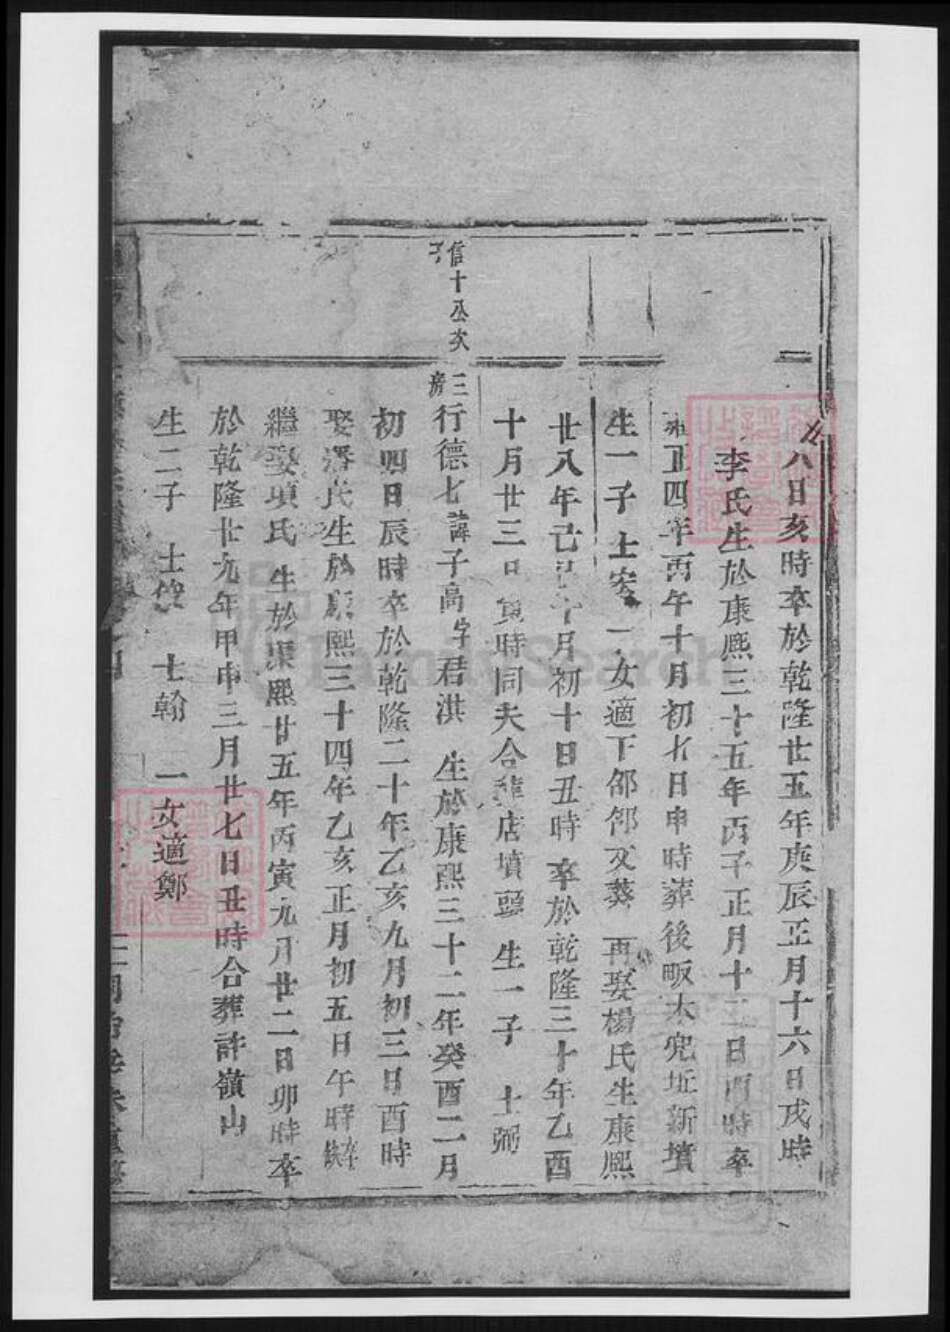 八日亥時卒於乾隆廿五年庚辰正月十六日戌時
李氏生於康熙三十五年丙子正月十二日酉時卒
雍正四年丙午十月初七日申時葬後畈大兜坵新墳
生一子 士宏 一女適下邵邵文葵 再娶楊氏生康熙
廿八年己巳十月初十日丑時卒於乾隆三十年乙酉
十月廿三日寅時同夫合葬店墳頭 生一子 士弼
信十公次子
三房行德七諱子高字君洪 生於康熙三十二年癸酉二月
初四日辰時卒於乾隆二十年乙亥九月初三日酉時
娶潘氏生於康熙三十四年乙亥正月初五日午時卒缺
繼娶項氏 生於康熙廿五年丙寅九月廿二日卯時卒
於乾隆廿九年甲申三月廿七日丑時合葬許嶺山
生二子 士俊 士翰 一女適鄭
FamilySearch